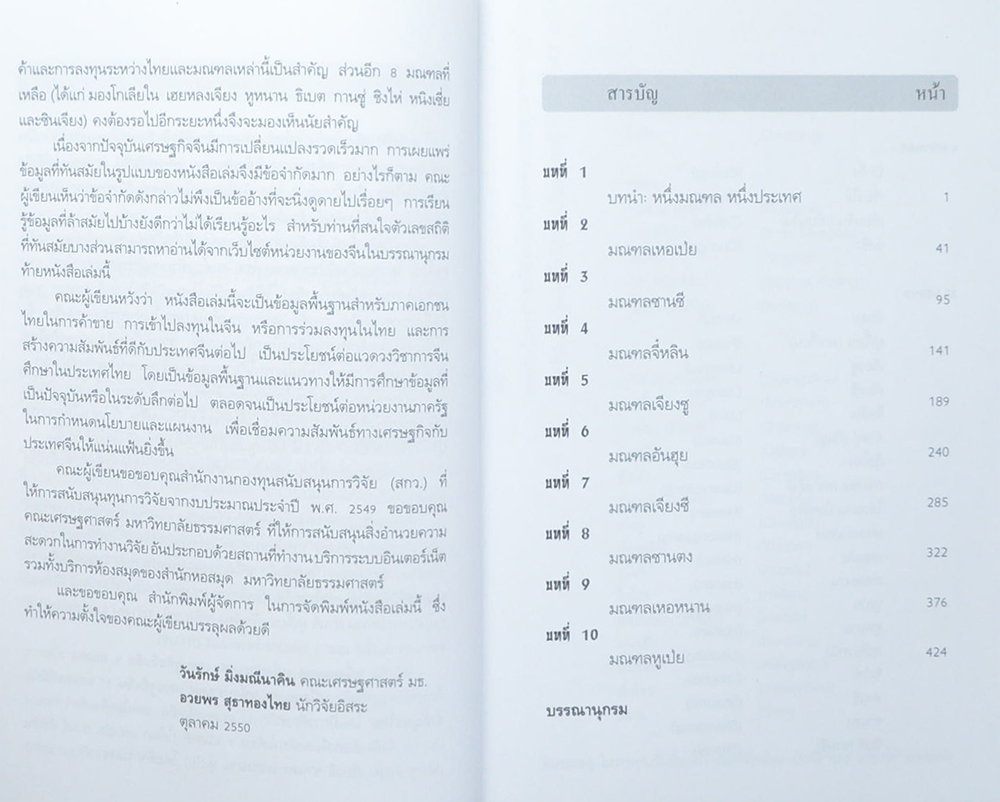 ค้าและการลงทุนระหว่างไทยและมณฑลเหล่านี้เป็นสำคัญ ส่วนอีก 8 มณฑลที่
เหลือ (ได้แก่ มองโกเลียใน เฮยหลงเจียง หูหนาน ธิเบต กานซู่ ชิงไห่ หนิงเซี่ย
และซินเจียง) คงต้องรอไปอีกระยะหนึ่งจึงจะมองเห็นนัยสำคัญ
เนื่องจากปัจจุบันเศรษฐกิจจีนมีการเปลี่ยนแปลงรวดเร็วมาก การเผยแพร่
ข้อมูลที่ทันสมัยในรูปแบบของหนังสือเล่มจึงมีข้อจำกัดมาก อย่างไรก็ตาม คณะ
ผู้เขียนเห็นว่าข้อจำกัดดังกล่าวไม่พึงเป็นข้ออ้างที่จะนิ่งดูดายไปเรื่อยๆ การเรียน
รู้ข้อมูลที่ล้าสมัยไปบ้างยังดีกว่าไม่ได้เรียนรู้อะไร สำหรับท่านที่สนใจตัวเลขสถิติ
ที่ทันสมัยบางส่วนสามารถหาอ่านได้จากเว็บไซต์หน่วยงานของจีนในบรรณานุกรม
ท้ายหนังสือเล่มนี้
คณะผู้เขียนหวังว่า หนังสือเล่มนี้จะเป็นข้อมูลพื้นฐานสำหรับภาคเอกชน
ไทยในการค้าขาย การเข้าไปลงทุนในจีน หรือการร่วมลงทุนในไทย และการ
สร้างความสัมพันธ์ที่ดีกับประเทศจีนต่อไป เป็นประโยชน์ต่อแวดวงวิชาการจีน
ศึกษาในประเทศไทย โดยเป็นข้อมูลพื้นฐานและแนวทางให้มีการศึกษาข้อมูลที่
เป็นปัจจุบันหรือในระดับลึกต่อไป ตลอดจนเป็นประโยชน์ต่อหน่วยงานภาครัฐ
ในการกำหนดนโยบายและแผนงาน เพื่อเชื่อมความสัมพันธ์ทางเศรษฐกิจกับ
ประเทศจีนให้แน่นแฟ้นยิ่งขึ้น
คณะผู้เขียนขอขอบคุณสำนักงานกองทุนสนับสนุนการวิจัย (สกว.) ที่
ให้การสนับสนุนทุนการวิจัยจากงบประมาณประจำปี พ.ศ. 2549 ขอขอบคุณ
คณะเศรษฐศาสตร์ มหาวิทยาลัยธรรมศาสตร์ ที่ให้การสนับสนุนสิ่งอำนวยความ
สะดวกในการทำงานวิจัย อันประกอบด้วยสถานที่ทำงาน บริการระบบอินเตอร์เน็ต
รวมทั้งบริการห้องสมุดของสำนักหอสมุด มหาวิทยาลัยธรรมศาสตร์
และขอขอบคุณ สำนักพิมพ์ผู้จัดการ ในการจัดพิมพ์หนังสือเล่มนี้ ซึ่ง
ทำให้ความตั้งใจของคณะผู้เขียนบรรลุผลด้วยดี
วันรักษ์ มิ่งมณีนาคิน คณะเศรษฐศาสตร์ มธ.
อวยพร สุธาทองไทย นักวิจัยอิสระ
ตุลาคม 2550
สารบัญ หน้า
บทที่ 1
บทนำ: หนึ่งมณฑล หนึ่งประเทศ 1
บทที่ 2
มณฑลเหอเป่ย 41
บทที่ 3
มณฑลซานซี 95
บทที่ 4
มณฑลจี๋หลิน 141
บทที่ 5
มณฑลเจียงซู 189
บทที่ 6
มณฑลอันฮุย 240
บทที่ 7
มณฑลเจียงซี 285
บทที่ 8
มณฑลซานตง 322
บทที่ 9
มณฑลเหอหนาน 376
บทที่ 10
มณฑลหูเป่ย 424
บรรณานุกรม